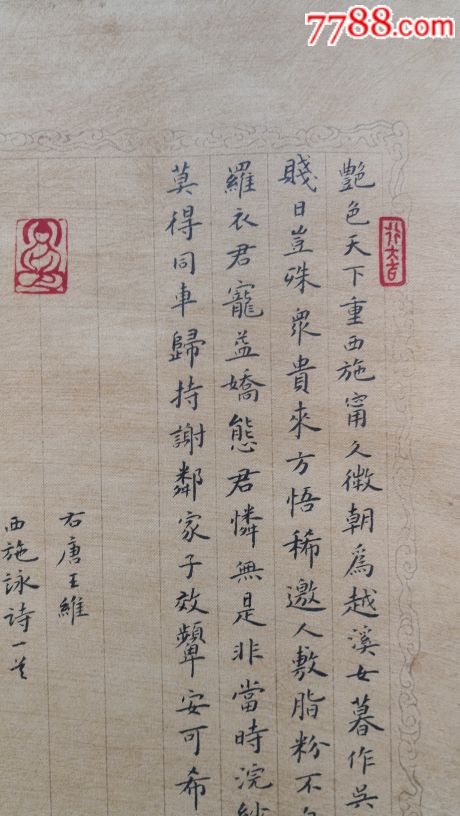 7788.com
豔色天下重西施甯久微朝爲越溪女暮作吳
賤日豈殊眾貴來方悟稀邀人敷脂粉不
羅衣君寵益嬌態君憐無是非當時浣紗
莫得同車歸持謝鄰家子效顰安可希
右唐王維
西施詠詩一首
大吉